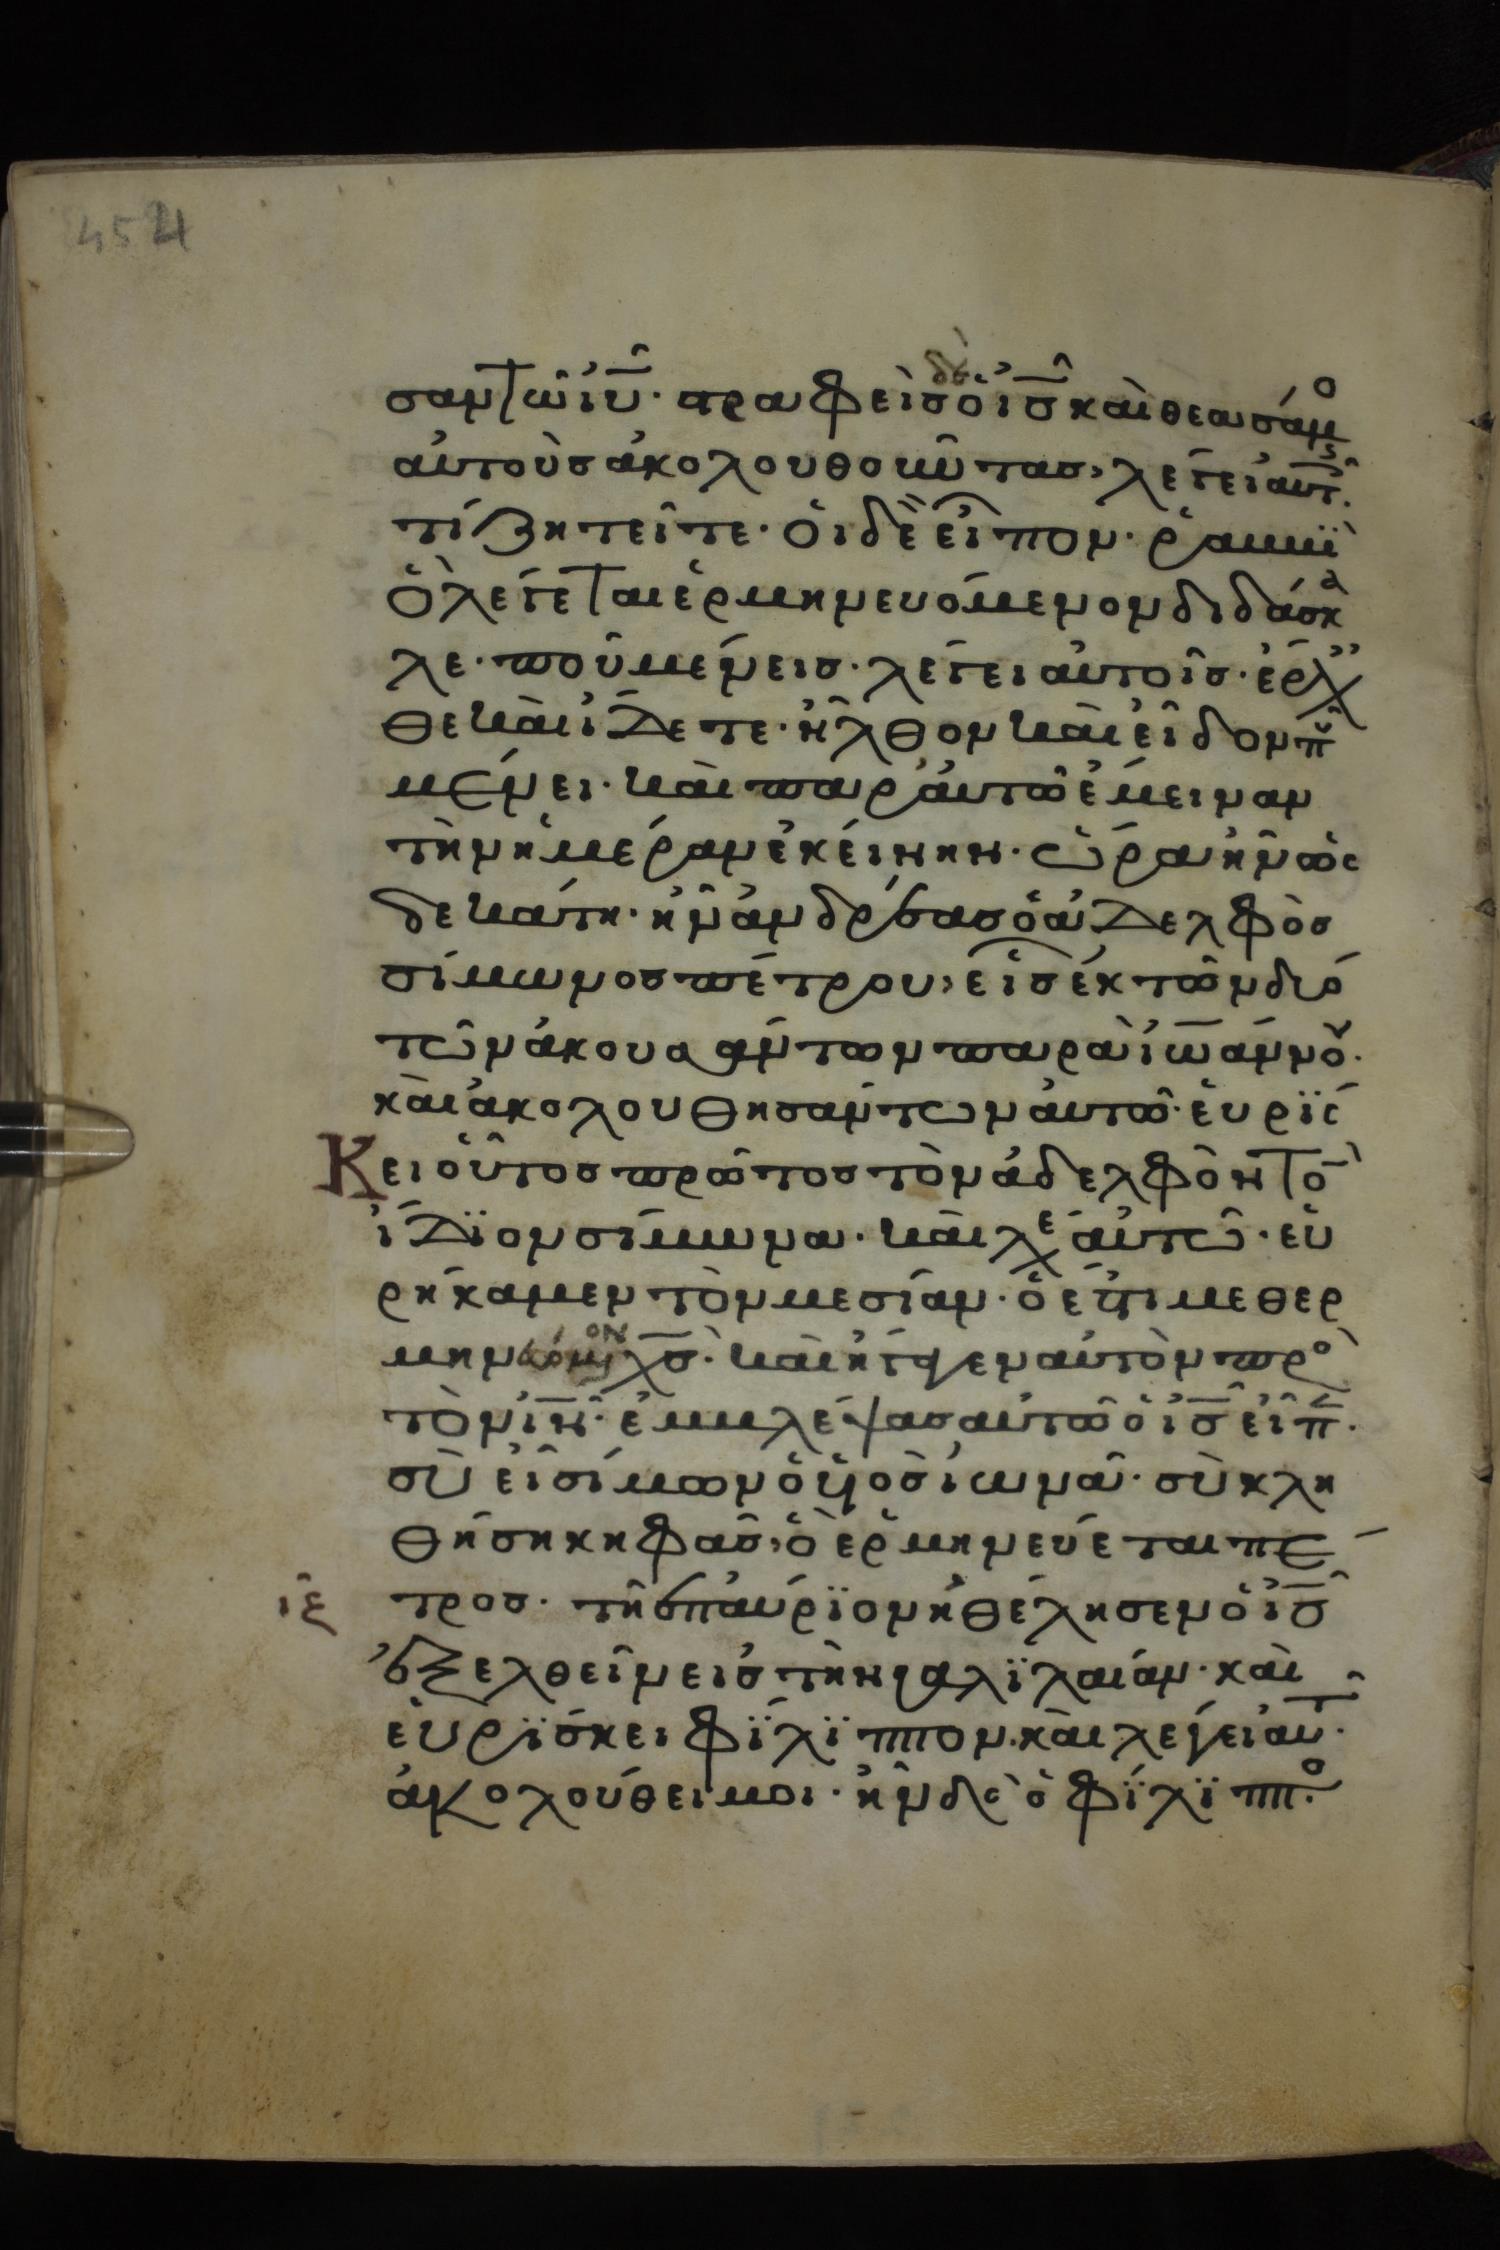 454
σαν τῶ ἰῦ· στραφεὶς δὲ ὁ ἰς καὶ θεασάμ̊
αὐτοὺς ἀκολουθοῦντας, λέγει αὐτ̂.
τί ζητεῖτε· ὁι δὲ εἶπον· ῥαββϊ
ὃ λέγεται ἑρμηνευόμενον διδάσκα
λε· ποῦ μένεις· λέγει αὐτοῖς· ἔρχε
θε καὶ ἴδετε· ἦλθον καὶ εἶδον ποῦ
μένει· καὶ παρ' αὐτῶ ἔμειναν
τὴν ἡμέραν ἐκείνην· ὥρα ἦν ὡς
δεκάτη· ἦν ἀνδρέας ὁ ἀδελφὸς
σίμωνος πέτρου, εἷς ἐκ τῶν δύο
τῶν ἀκουσάντων παρὰ ἰωάννου·
καὶ ἀκολουθησάντων αὐτῶ· εὑρίσ
κει οὗτος πρῶτος τὸν ἀδελφὸν τὸ
ἴδϊον σίμωνα· καὶ λέγει αὐτῶ· εὑ
ρήκαμεν τὸν μεσίαν· ὅ ἐστι μεθερ
μηνευόμενον χς· καὶ ἤγαγεν αὐτὸν πρὸς
τὸν ἰν· ἐμβλέψας αὐτῶ ὁ ἰς εἶπ·
σὺ εἶ σίμων ὁ ὑιὸς ἰωνᾶ· σὺ κλη
θήση κηφᾶς, ὃ ἑρμηνεύεται πέ
ιε τρος· τῆ ἐπάυρϊον ἠθέλησεν ὁ ἰς
ἐξελθεῖν εἰς τὴν γαλϊλαίαν· καὶ
εὑρϊσκει φϊλϊππον. καὶ λέγει αὐτ·
ἀκολούθει μοι· ἦν δὲ ὁ φϊλϊππο.